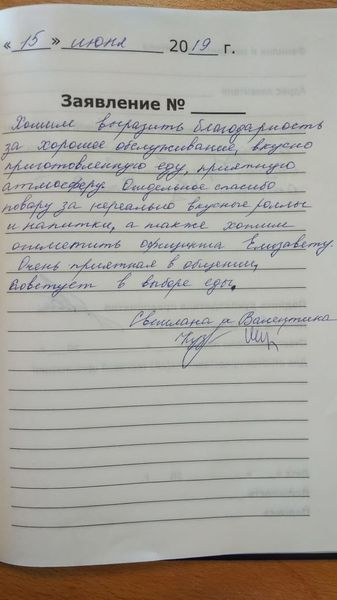 « 15 » июня 2019 г.
Заявление №
Хотим выразить благодарность
за хорошое обслуживание, вкусно
приготовленную еду, приятную
атмосферу. Отдельное спасибо
повару за нереально вкусные роллы
и напитки, а также хотим
отметить официанта Елизавету.
Очень приятная в общении,
советует в выборе еды.
Светлана и Валентина